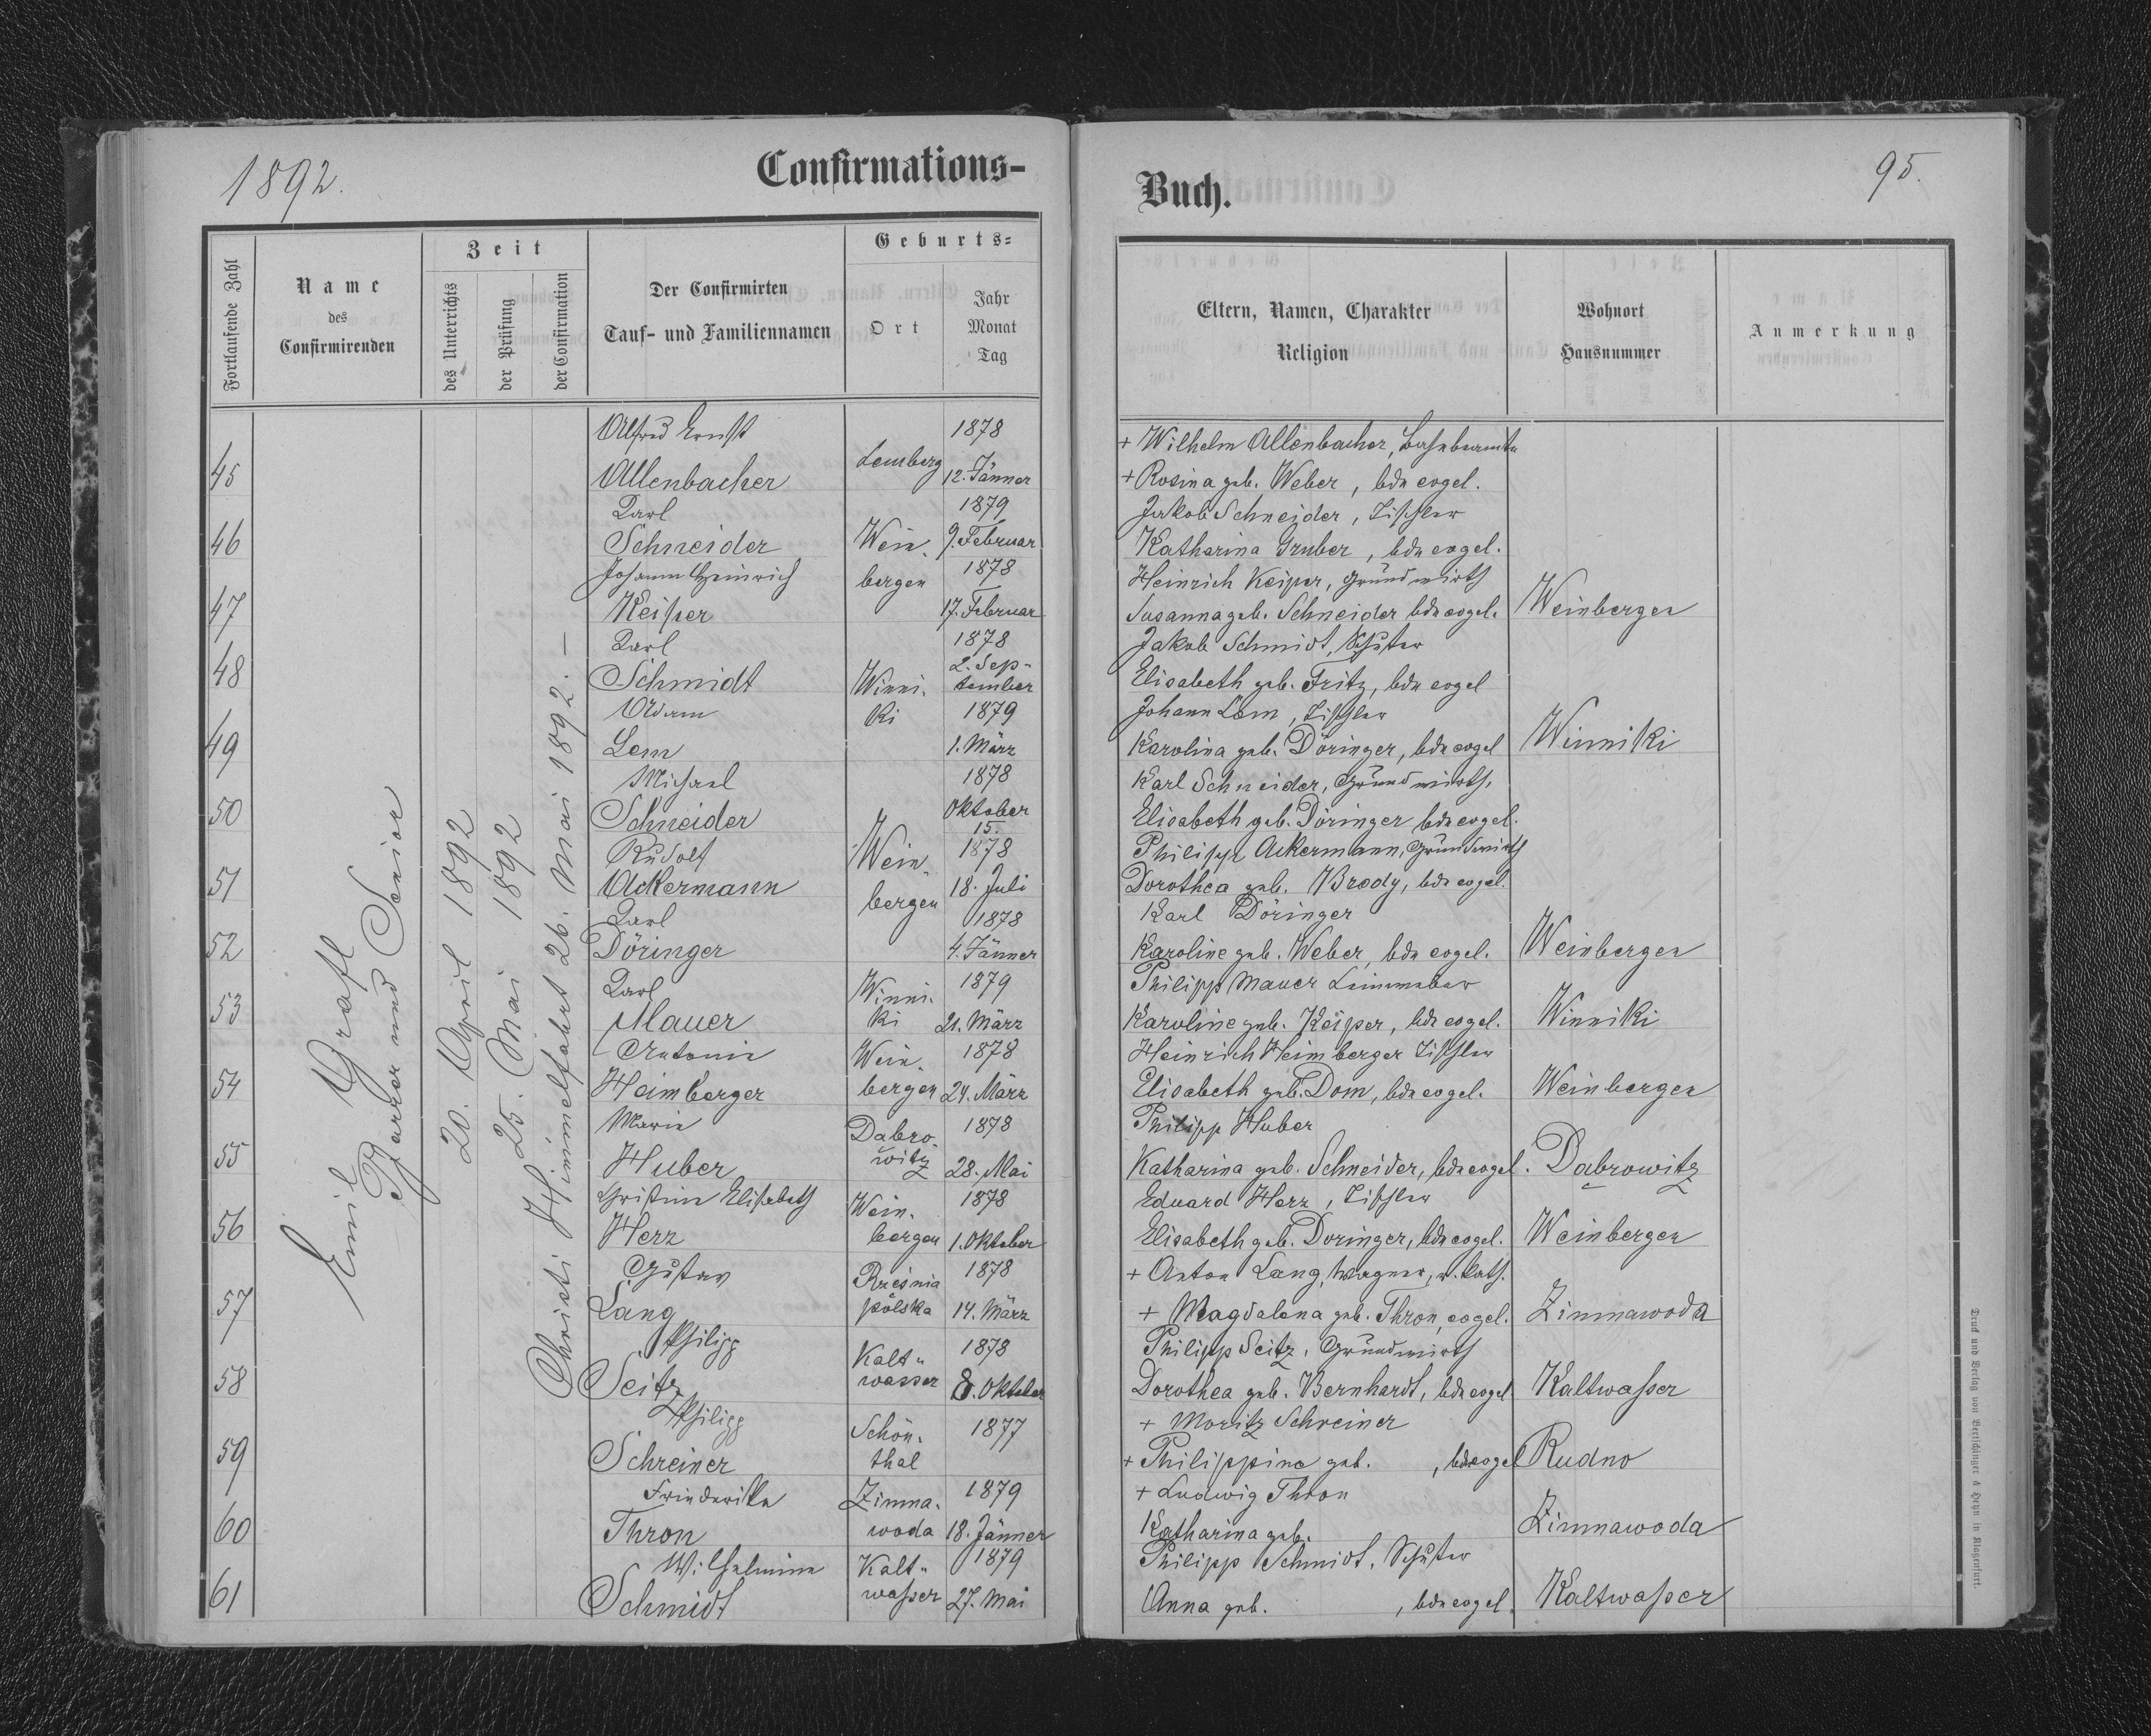 1892.
Confirmations-
Fortlaufende Zahl
Name
des
Confirmirenden
Zeit
des Unterrichts
der Prüfung
der Confirmation
Der Confirmirten
Tauf- und Familiennamen
Geburts-
Ort
Jahr
Monat
Tag
Emil Grafl
Pfarrer und Senior
20. April 1892
25. Mai 1892
Christi Himmelfahrt 26. Mai 1892. —
Alfred Ernst 1878
45 Allenbacher Lemberg 12. Jänner
Karl 1879
46 Schneider Wein- 9. Februar
Johann Heinrich bergen 1878
47 Keiper 17. Februar
Karl 1878
48 Schmidt Winni- 2. Sep-
tember
Adam ki 1879
49 Lem 1. März
Michael 1878
50 Schneider Oktober
15.
Rudolf Wein- 1878
51 Ackermann bergen 18. Juli
Karl 1878
52 Döringer 4. Jänner
Karl Winni- 1879
53 Mauer ki 21. März
Antonie Wein- 1878
54 Heimberger bergen 24. März
Marie Dabro- 1878
55 Huber witz 28. Mai
Christine Elisabeth Wein- 1878
56 Herz bergen 1. Oktober
Gustav Rzesnia 1878
57 Lang polska 14. März
Philipp Kalt- 1878
58 Seitz wasser 8. Oktober
Philipp Schön- 1877
59 Schreiner thal
Friederike Zimna- 1879
60 Thron woda 18. Jänner
Wilhelmine Kalt- 1879
61 Schmidt waſser 27. Mai
Buch.
95.
Eltern, Namen, Charakter
Religion
Wohnort
Hausnummer
Anmerkung
+ Wilhelm Allenbacher, Bahnbeamte
+ Rosina geb. Weber, bde evgel.
Jakob Schneider, Tischler
Katharina Gruber, bde evgel.
Heinrich Keiper, Grundwirth
Susanna geb. Schneider bde evgel. Weinbergen
Jakob Schmidt, Schuster
Elisabeth geb. Fritz, bde evgel
Johann Lem, Tischler
Karolina geb. Döringer, bde evgel Winniki
Karl Schneider, Grundwirth,
Elisabeth geb. Döringer bde evgel.
Philipp Ackermann, Grundwirth
Dorothea geb. Brody, bde evgel.
Karl Döringer
Karoline geb. Weber, bde evgel. Weinbergen
Philipp Mauer
Karoline geb. Keiper, bde evgel. Winniki
Heinrich Heimberger Tischler
Elisabeth geb. Dom, bde evgel. Weinbergen
Philipp Huber
Katharina geb. Schneider, bde evgel. Dabrowitz
Eduard Herz, Tischler
Elisabeth geb. Doringer, bde evgel. Weinbergen
+ Anton Lang, Wagner, r. kath.
+ Magdalena geb. Thron, evgel. Zimnawoda
Philipp Seitz, Grundwirth
Dorothea geb. Bernhardt, bde evgel Kaltwaſser
+ Moritz Schreiner
+ Philippine geb. , bde evgel Rudno
+ Ludwig Thron
Katharina geb. Zimnawoda
Philipp Schmidt, Schuster
Anna geb. , bde evgel. Kaltwaſser